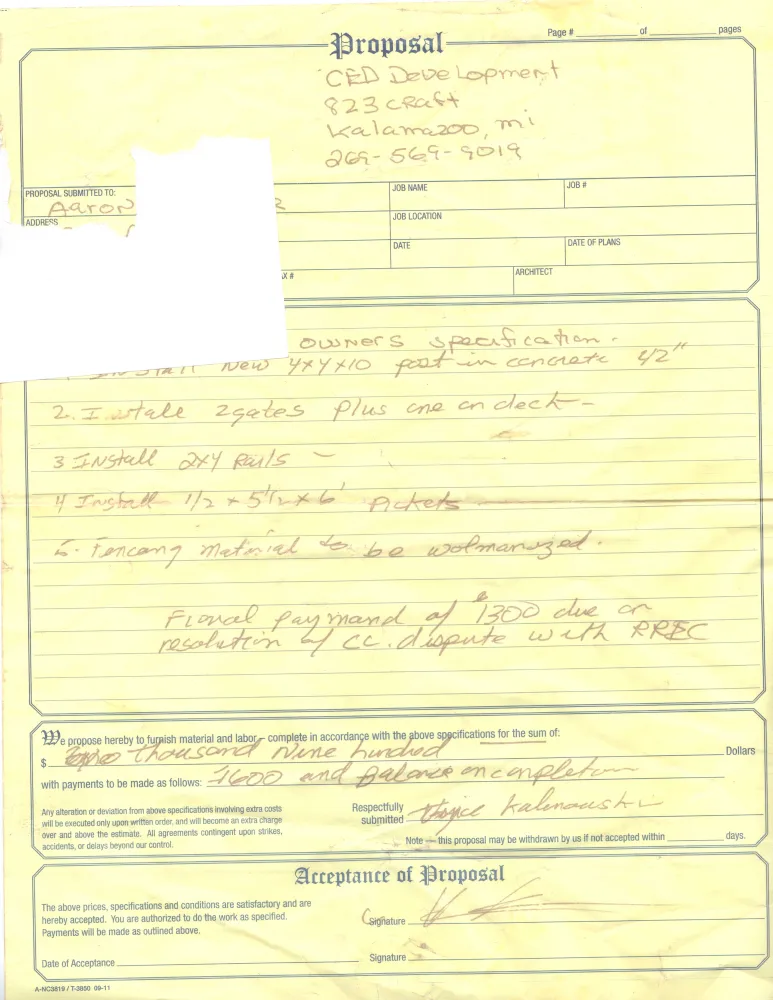 Proposal
Page # of pages
CED Development
823 CRaft
Kalamazoo, mi
269-569-9019
PROPOSAL SUBMITTED TO:
JOB NAME
JOB #
Aaron
ADDRESS
JOB LOCATION
DATE
DATE OF PLANS
X #
ARCHITECT
OWNERS specification.
New 4x4x10 post in concrete 42"
2. Install 2gates plus one on deck-
3 INstall 2x4 Rails -
4 Install 1/2 x 5 1/2 x 6' Pickets
5. Fencang material to be wolmanized.
Fional paymand of $1300 due on
resolution of CC. dispute with RREC
We propose hereby to furnish material and labor – complete in accordance with the above specifications for the sum of:
$ thousand Nine hundred Dollars
with payments to be made as follows: 1600 and Balance on completion
Any alteration or deviation from above specifications involving extra costs
will be executed only upon written order, and will become an extra charge
over and above the estimate. All agreements contingent upon strikes,
accidents, or delays beyond our control.
Respectfully
submitted
Note — this proposal may be withdrawn by us if not accepted within days.
Acceptance of Proposal
The above prices, specifications and conditions are satisfactory and are
hereby accepted. You are authorized to do the work as specified.
Payments will be made as outlined above.
Signature
Date of Acceptance
Signature
A-NC3819 / T-3850 09-11